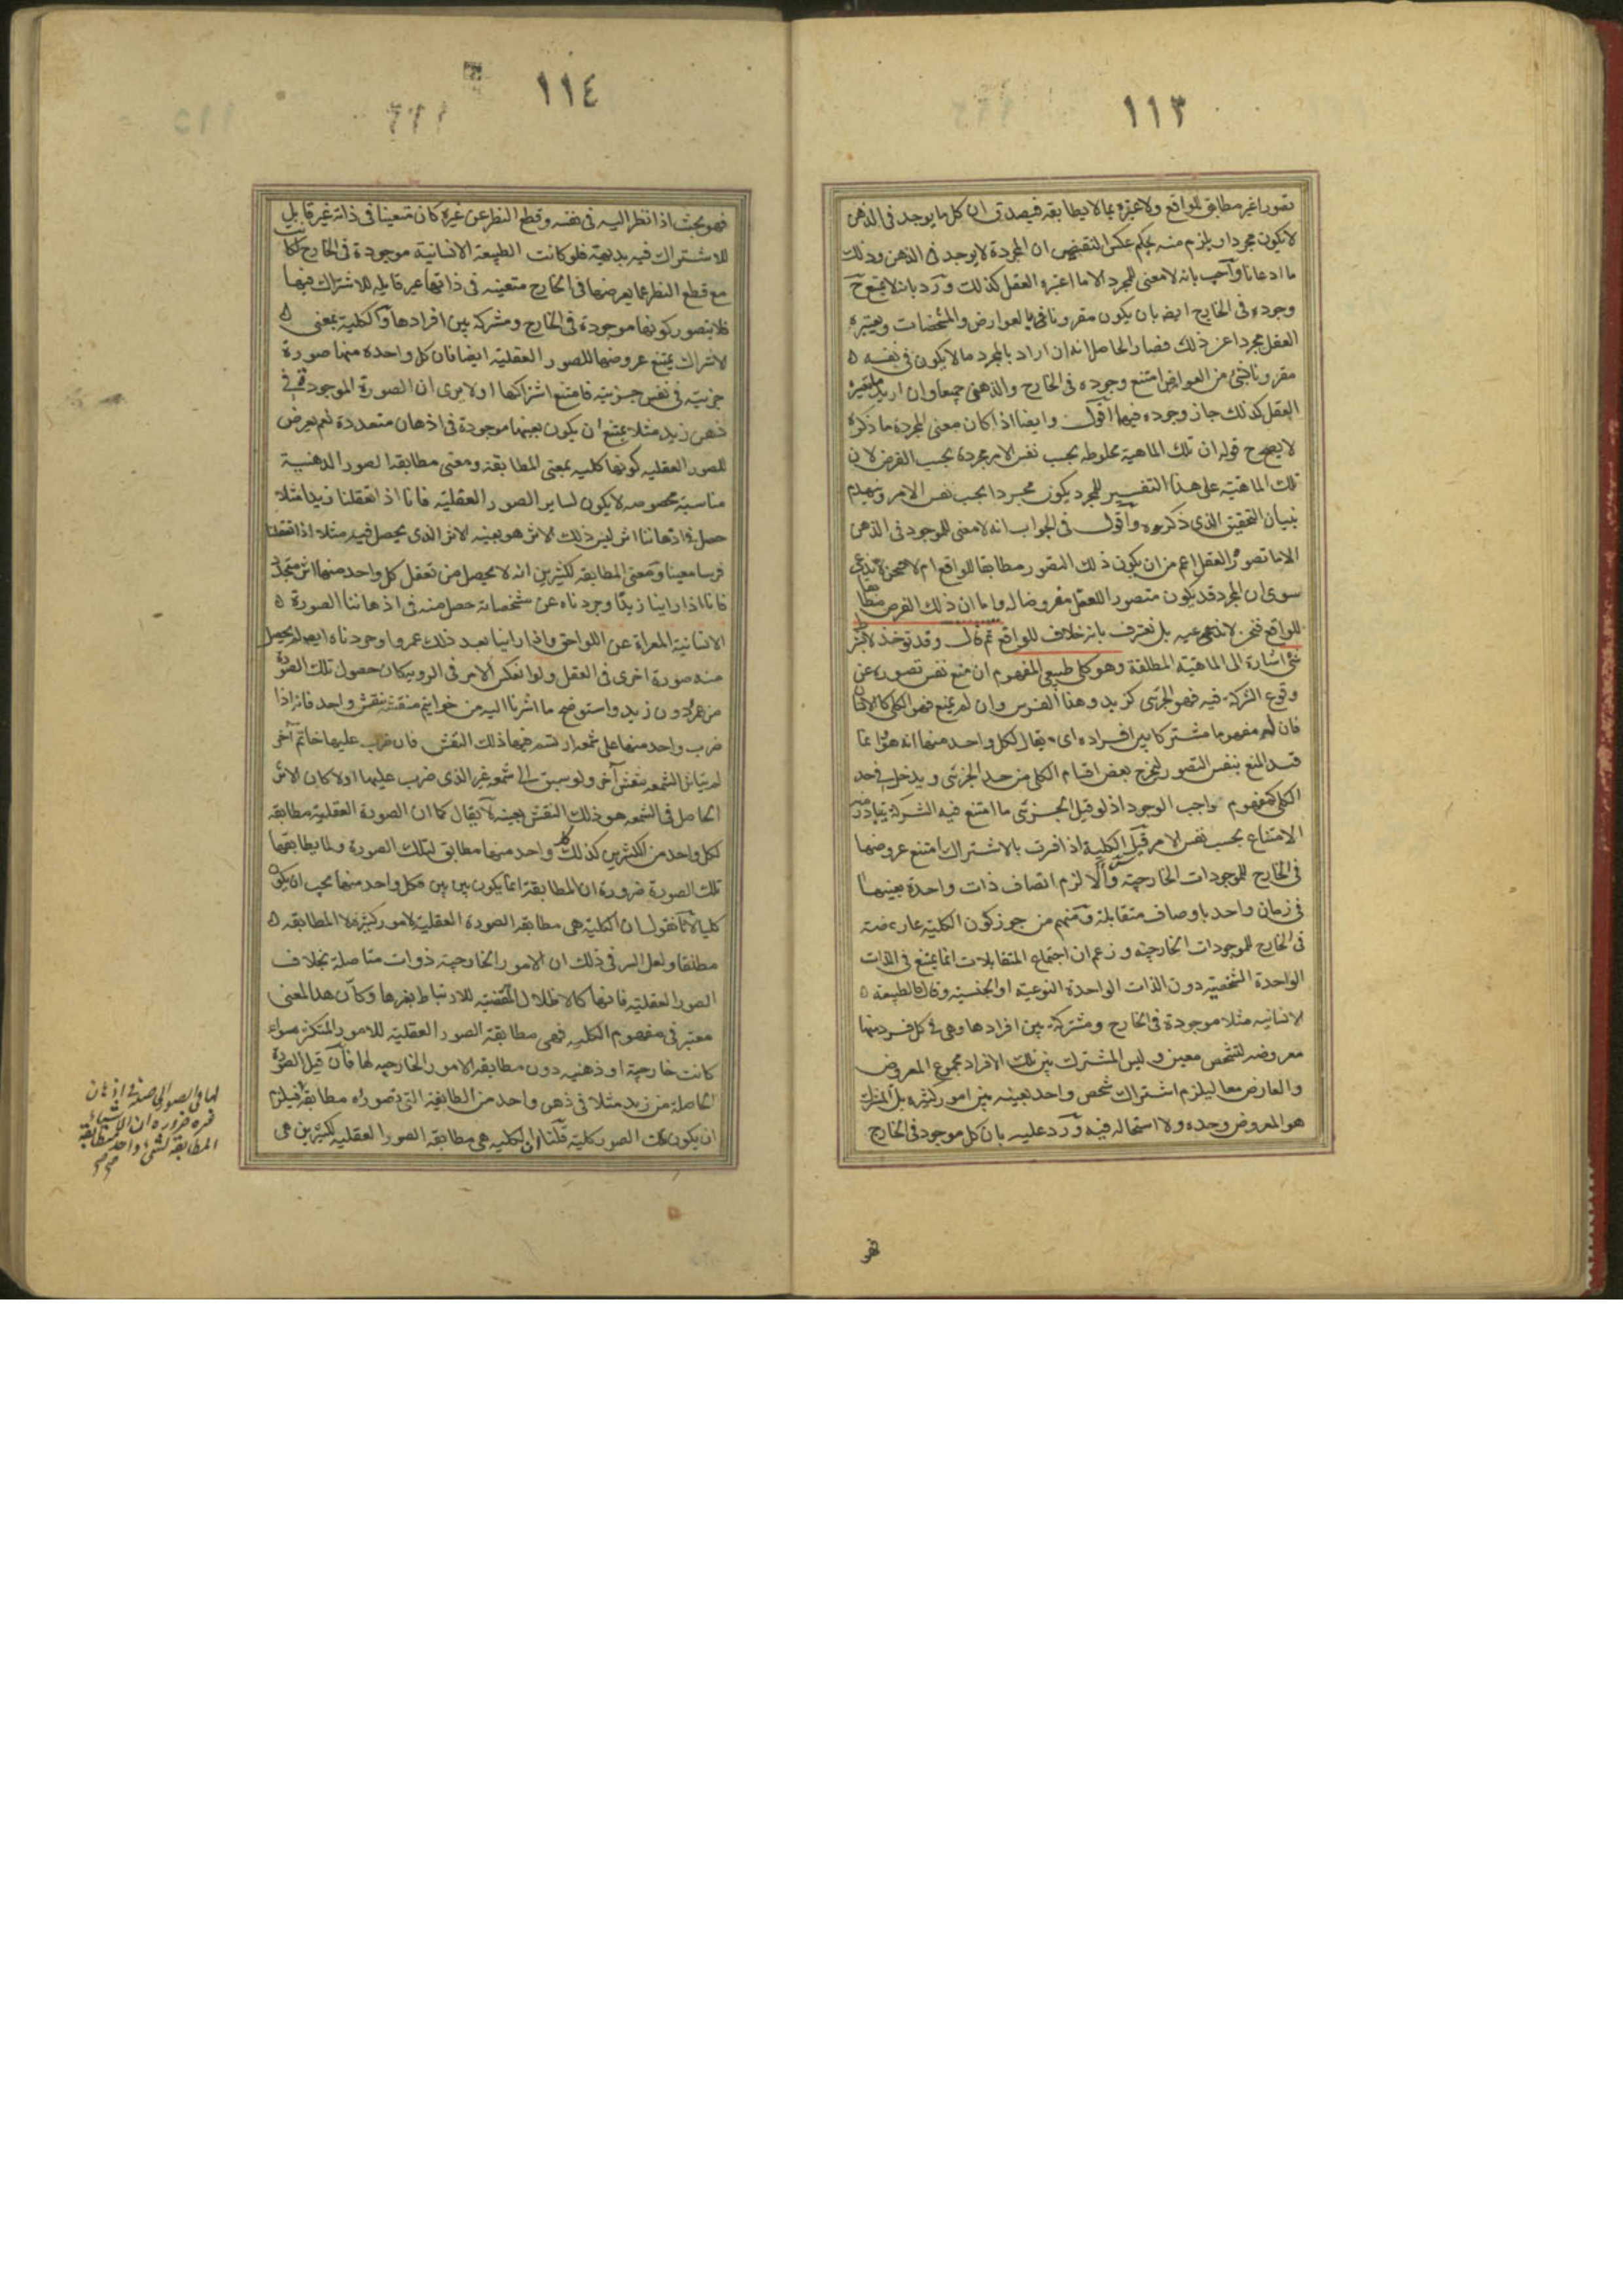 ١١٣
تصورا غير مطابق للواقع ولا عبرة بما لا يطابقه فيصدق ان كل ما يوجد فى الذهن
لا يكون مجردا ويلزم منه بحكم عكس النقيض ان المجردة لا يوجد فى الذهن وذلك
ما ادعانا واجيب بانه لا معنى للمجرد الا ما اعتبره العقل كذلك ورد بانه لا يمتنع ح
وجوده فى الخارج ايضا بان يكون مقرونا بالعوارض والمشخصات ويعتبره
العقل مجردا عن ذلك فصار الحاصل انه ان اراد بالمجرد ما لا يكون فى نفسه
مقرونا بشئ من العوارض امتنع وجوده فى الخارج والذهن جميعا وان اريد ما يعتبره
العقل كذلك جاز وجوده فيهما اقول وايضا اذا كان معنى المجردة ما ذكره
لا يصح قوله ان تلك الماهية مخلوطة بحسب نفس الامر مجردة بحسب الفرض لان
تلك الماهية على هذا التفسير للمجرد يكون مجردا بحسب نفس الامر وينهدم
بنيان التحقيق الذى ذكروه واقول فى الجواب انه لا معنى للموجود فى الذهن
الا ما تصوره العقل اعم من ان يكون ذلك التصور مطابقا للواقع ام لا فنحن لا ندعى
سوى ان المجرد قد يكون متصورا للعقل مفروضا له واما ان ذلك الفرض مطابق
للواقع فنحن لا ندعيه بل نعترف بانه خلاف للواقع ثم قال وقد تؤخذ لا بشرط
شئ اشارة الى الماهية المطلقة وهو كلى طبيعى المفهوم ان منع نفس تصوره عن
وقوع الشركة فيه فهو الجزئى كزيد وهذا الفرس وان لم يمنع فهو الكلى كالانسان
فان له مفهوما مشتركا بين افراده اى يقال لكل واحد منها انه هو وانما
قيد المنع بنفس التصور ليخرج بعض اقسام الكلى من حد الجزئى ويدخل فى حد
الكلى كمفهوم واجب الوجود اذ لو قيل الجزئى ما امتنع فيه الشركة يتبادر منه
الامتناع بحسب نفس الامر قيل الكلية اذا فسرت بالاشتراك امتنع عروضها
فى الخارج للموجودات الخارجية والا لزم اتصاف ذات واحدة بعينها
فى زمان واحد باوصاف متقابلة ومنهم من جوز كون الكلية عارضة
فى الخارج للموجودات الخارجية وزعم ان اجتماع المتقابلات انما يمتنع فى الذات
الواحدة الشخصية دون الذات الواحدة النوعية او الجنسية وقال الطبيعة
الانسانية مثلا موجودة فى الخارج ومشتركة بين افرادها وهى فى كل فرد منها
معروضة لتشخص معين وليس المشترك بين تلك الافراد مجموع المعروض
والعارض معا ليلزم اشتراك شخص واحد بعينه بين امور كثيرة بل المشترك
هو المعروض وحده ولا استحالة فيه ورد عليه بان كل موجود فى الخارج
فهو
١١٤
فهو بحيث اذا نظر اليه فى نفسه وقطع النظر عن غيره كان متعينا فى ذاته غير قابل
للاشتراك فيه بديهة فلو كانت الطبيعة الانسانية موجودة فى الخارج لكانت
مع قطع النظر عما يعرضها فى الخارج متعينه فى ذاتها غير قابله للاشتراك فيها
فلا يتصور كونها موجودة فى الخارج ومشتركة بين افرادها والكلية بمعنى
الاشتراك يمتنع عروضها للصور العقلية ايضا فان كل واحدة منها صورة
جزئية فى نفس جزئية فامتنع اشتراكها اولا يرى ان الصورة الموجودة فى
ذهن زيد مثلا يمتنع ان يكون بعينها موجودة فى اذهان متعددة نعم يعرض
للصور العقلية كونها كلية بمعنى المطابقة ومعنى مطابقة الصور الذهنية
مناسبة مخصوصه لا يكون لساير الصور العقلية فانا اذا تعقلنا زيدا مثلا
حصل فى اذهاننا اثر ليس ذلك الاثر هو بعينه الاثر الذى يحصل فيه مثلا اذا تعقلنا
فرسا معينا ومعنى المطابقة لكثيرين انه لا يحصل من تعقل كل واحد منها اثر متجدد
فانا اذا راينا زيدا وجردناه عن مشخصاته حصل منه فى اذهاننا الصورة
الانسانية المعراة عن اللواحق واذا راينا بعد ذلك عمروا وجردناه ايضا لم يحصل
منه صورة اخرى فى العقل ولو انعكس الامر فى الروية كان حصول تلك الصورة
من عمرو دون زيد واستوضح ما اشرنا اليه من خواتيم منقشة بنقش واحد فانه اذا
ضرب واحد منها على شمعة ارتسم فيها ذلك النقش فان ضرب عليها خاتم آخر
لم يتاثر الشمعة بنقش آخر ولو سبق الى شمعة غير الذى ضرب عليها اولا كان الاثر
الحاصل فى الشمعه هو ذلك النقش بعينه لا يقال كما ان الصورة العقلية مطابقة
لكل واحد من الكثيرين كذلك كل واحد منها مطابق لتلك الصورة ولما يطابقها
تلك الصورة ضرورة ان المطابقة انما يكون بين بين فكل واحد منها يجب ان يكون
كليا لانا نقول ان الكلية هى مطابقة الصورة العقلية لامور كثيرة لا المطابقه
مطلقا ولعل السر فى ذلك ان الامور الخارجية ذوات متاصلة بخلاف
الصور العقلية فانها كالاظلال المقتضية للارتباط بغيرها وكان هذا المعنى
معتبر فى مفهوم الكلية فهى مطابقة الصور العقلية للامور المتكثرة سواء
كانت خارجية او ذهنية دون مطابقة الامور الخارجية لها فان قيل الصورة
الحاصلة من زيد مثلا فى ذهن واحد من الطايفة التى تصوروه مطابقة فيلزم
ان يكون تلك الصور كلية قلنا ان الكلية هى مطابقة الصور العقلية لكثيرين هى
لباقى الصور الحاصلة فى اذهان
غيره ضرورة ان الاشياء
المطابقة لشئ واحد متطابقة